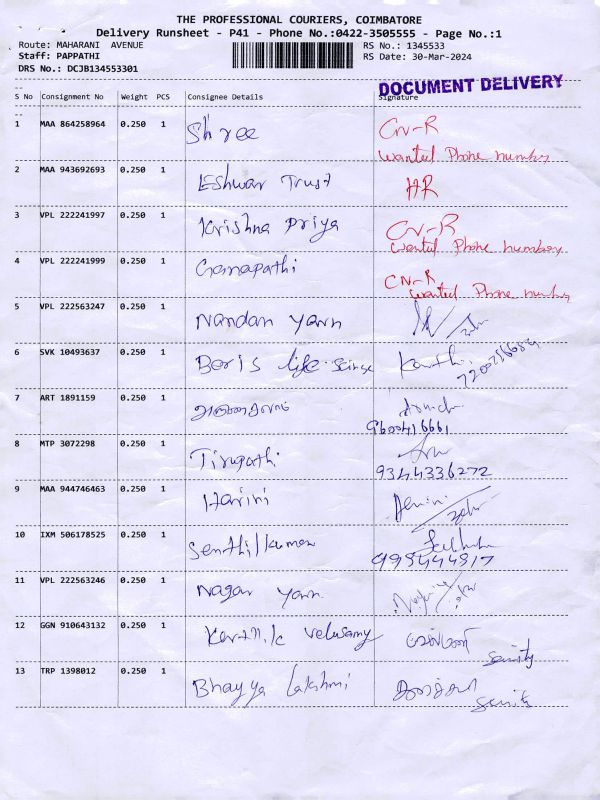 THE PROFESSIONAL COURIERS, COIMBATORE
Delivery Runsheet - P41 - Phone No.:0422-3505555 - Page No.:1
Route: MAHARANI AVENUE RS No.: 1345533
Staff: PAPPATHI RS Date: 30-Mar-2024
DRS No.: DCJB134553301
DOCUMENT DELIVERY
S No Consignment No Weight PCS Consignee Details Signature
1 MAA 864258964 0.250 1 Shree CN-R
wanted Phone number
2 MAA 943692693 0.250 1 Eshwar Trust HR
3 VPL 222241997 0.250 1 Krishna Priya CN-R
wanted Phone number
4 VPL 222241999 0.250 1 Ganapathi CN-R
wanted Phone number
5 VPL 222563247 0.250 1 Nandan yarn
6 SVK 10493637 0.250 1 Boris life
7 ART 1891159 0.250 1
9600416661
8 MTP 3072298 0.250 1 Tirupathi
9344336272
9 MAA 944746463 0.250 1 Harini
10 IXM 506178525 0.250 1 Senthilkumar
11 VPL 222563246 0.250 1 Nagar yarn
12 GGN 910643132 0.250 1 Karthik velusamy
13 TRP 1398012 0.250 1 Bhayya Lakshmi